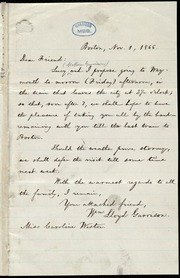 Boston, Nov. 1, 1866.
Dear Friend:
Lucy and I propose going to Wey-
mouth to-morrow (Friday) afternoon, in
the train that leaves the city at 2 1/2 o'clock;
so that, soon after 3, we shall hope to have
the pleasure of taking you all by the hand—
returning with you till the last train to
Boston.
Should the weather prove stormy,
we shall defer the visit till some time
next week.
With the warmest regards to all
the family, I remain,
Your attached friend,
Wm. Lloyd Garrison.
Miss Caroline Weston.